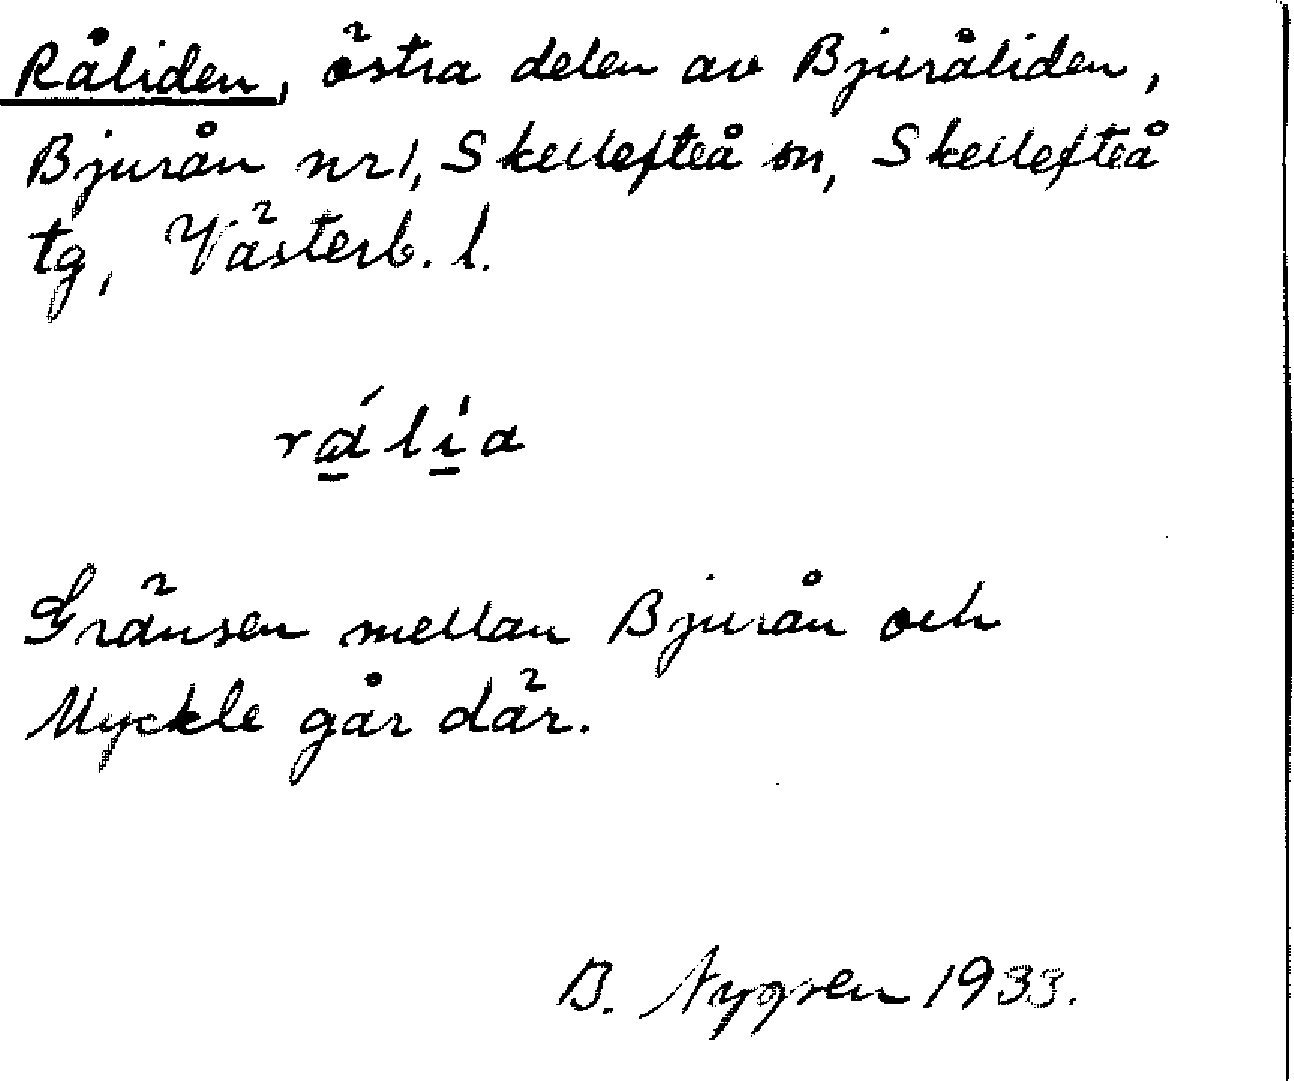 Råliden, östra delen av Bjuråliden,
Bjurån nr 1, Skellefteå sn, Skellefteå
tg, Västerb. l.
rá̱li̱̍a
Gränsen mellan Bjurån och
Myckle går där.
B. Nygren 1933.